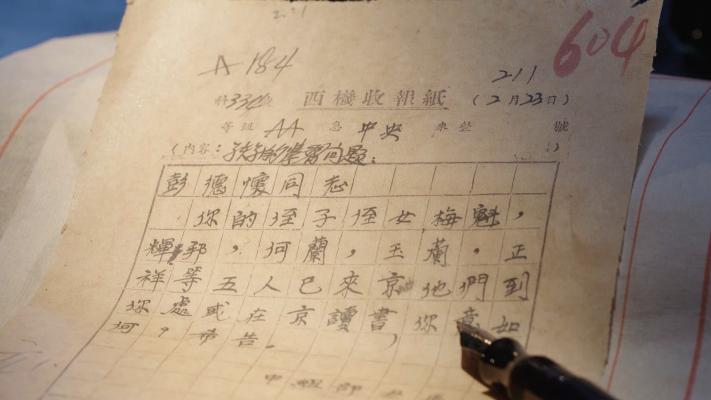 604
A 184
211
西機收報紙 (2月23日)
等級 AA 急 中央 號
(内容:学習问题。)
彭德懷同志
你的侄子侄女梅魁,
輝邦,何蘭,玉蘭,正
祥等五人已來京他們到
你處或在京讀書,你意如
何,希告。
中組部